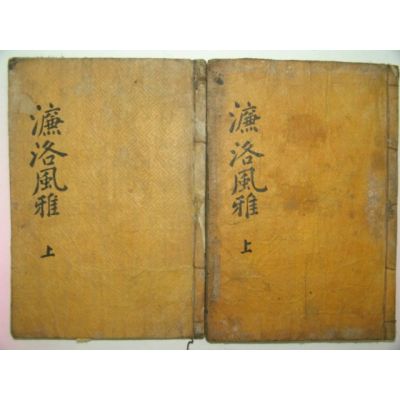 濂洛風雅
上
濂洛風雅
上